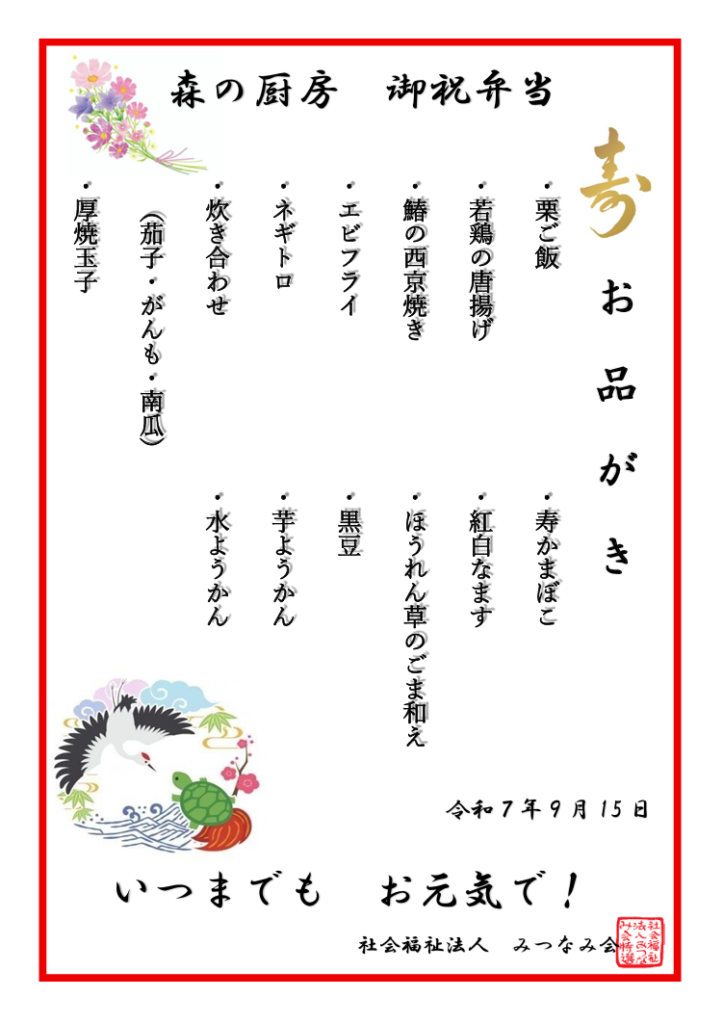 森の厨房　御祝弁当
寿　お品がき
・栗ご飯
・若鶏の唐揚げ
・鰆の西京焼き
・エビフライ
・ネギトロ
・炊き合わせ
（茄子・がんも・南瓜）
・厚焼玉子
・寿かまぼこ
・紅白なます
・ほうれん草のごま和え
・黒豆
・芋ようかん
・水ようかん
令和７年９月１５日
いつまでも　お元気で！
社会福祉法人　みつなみ会